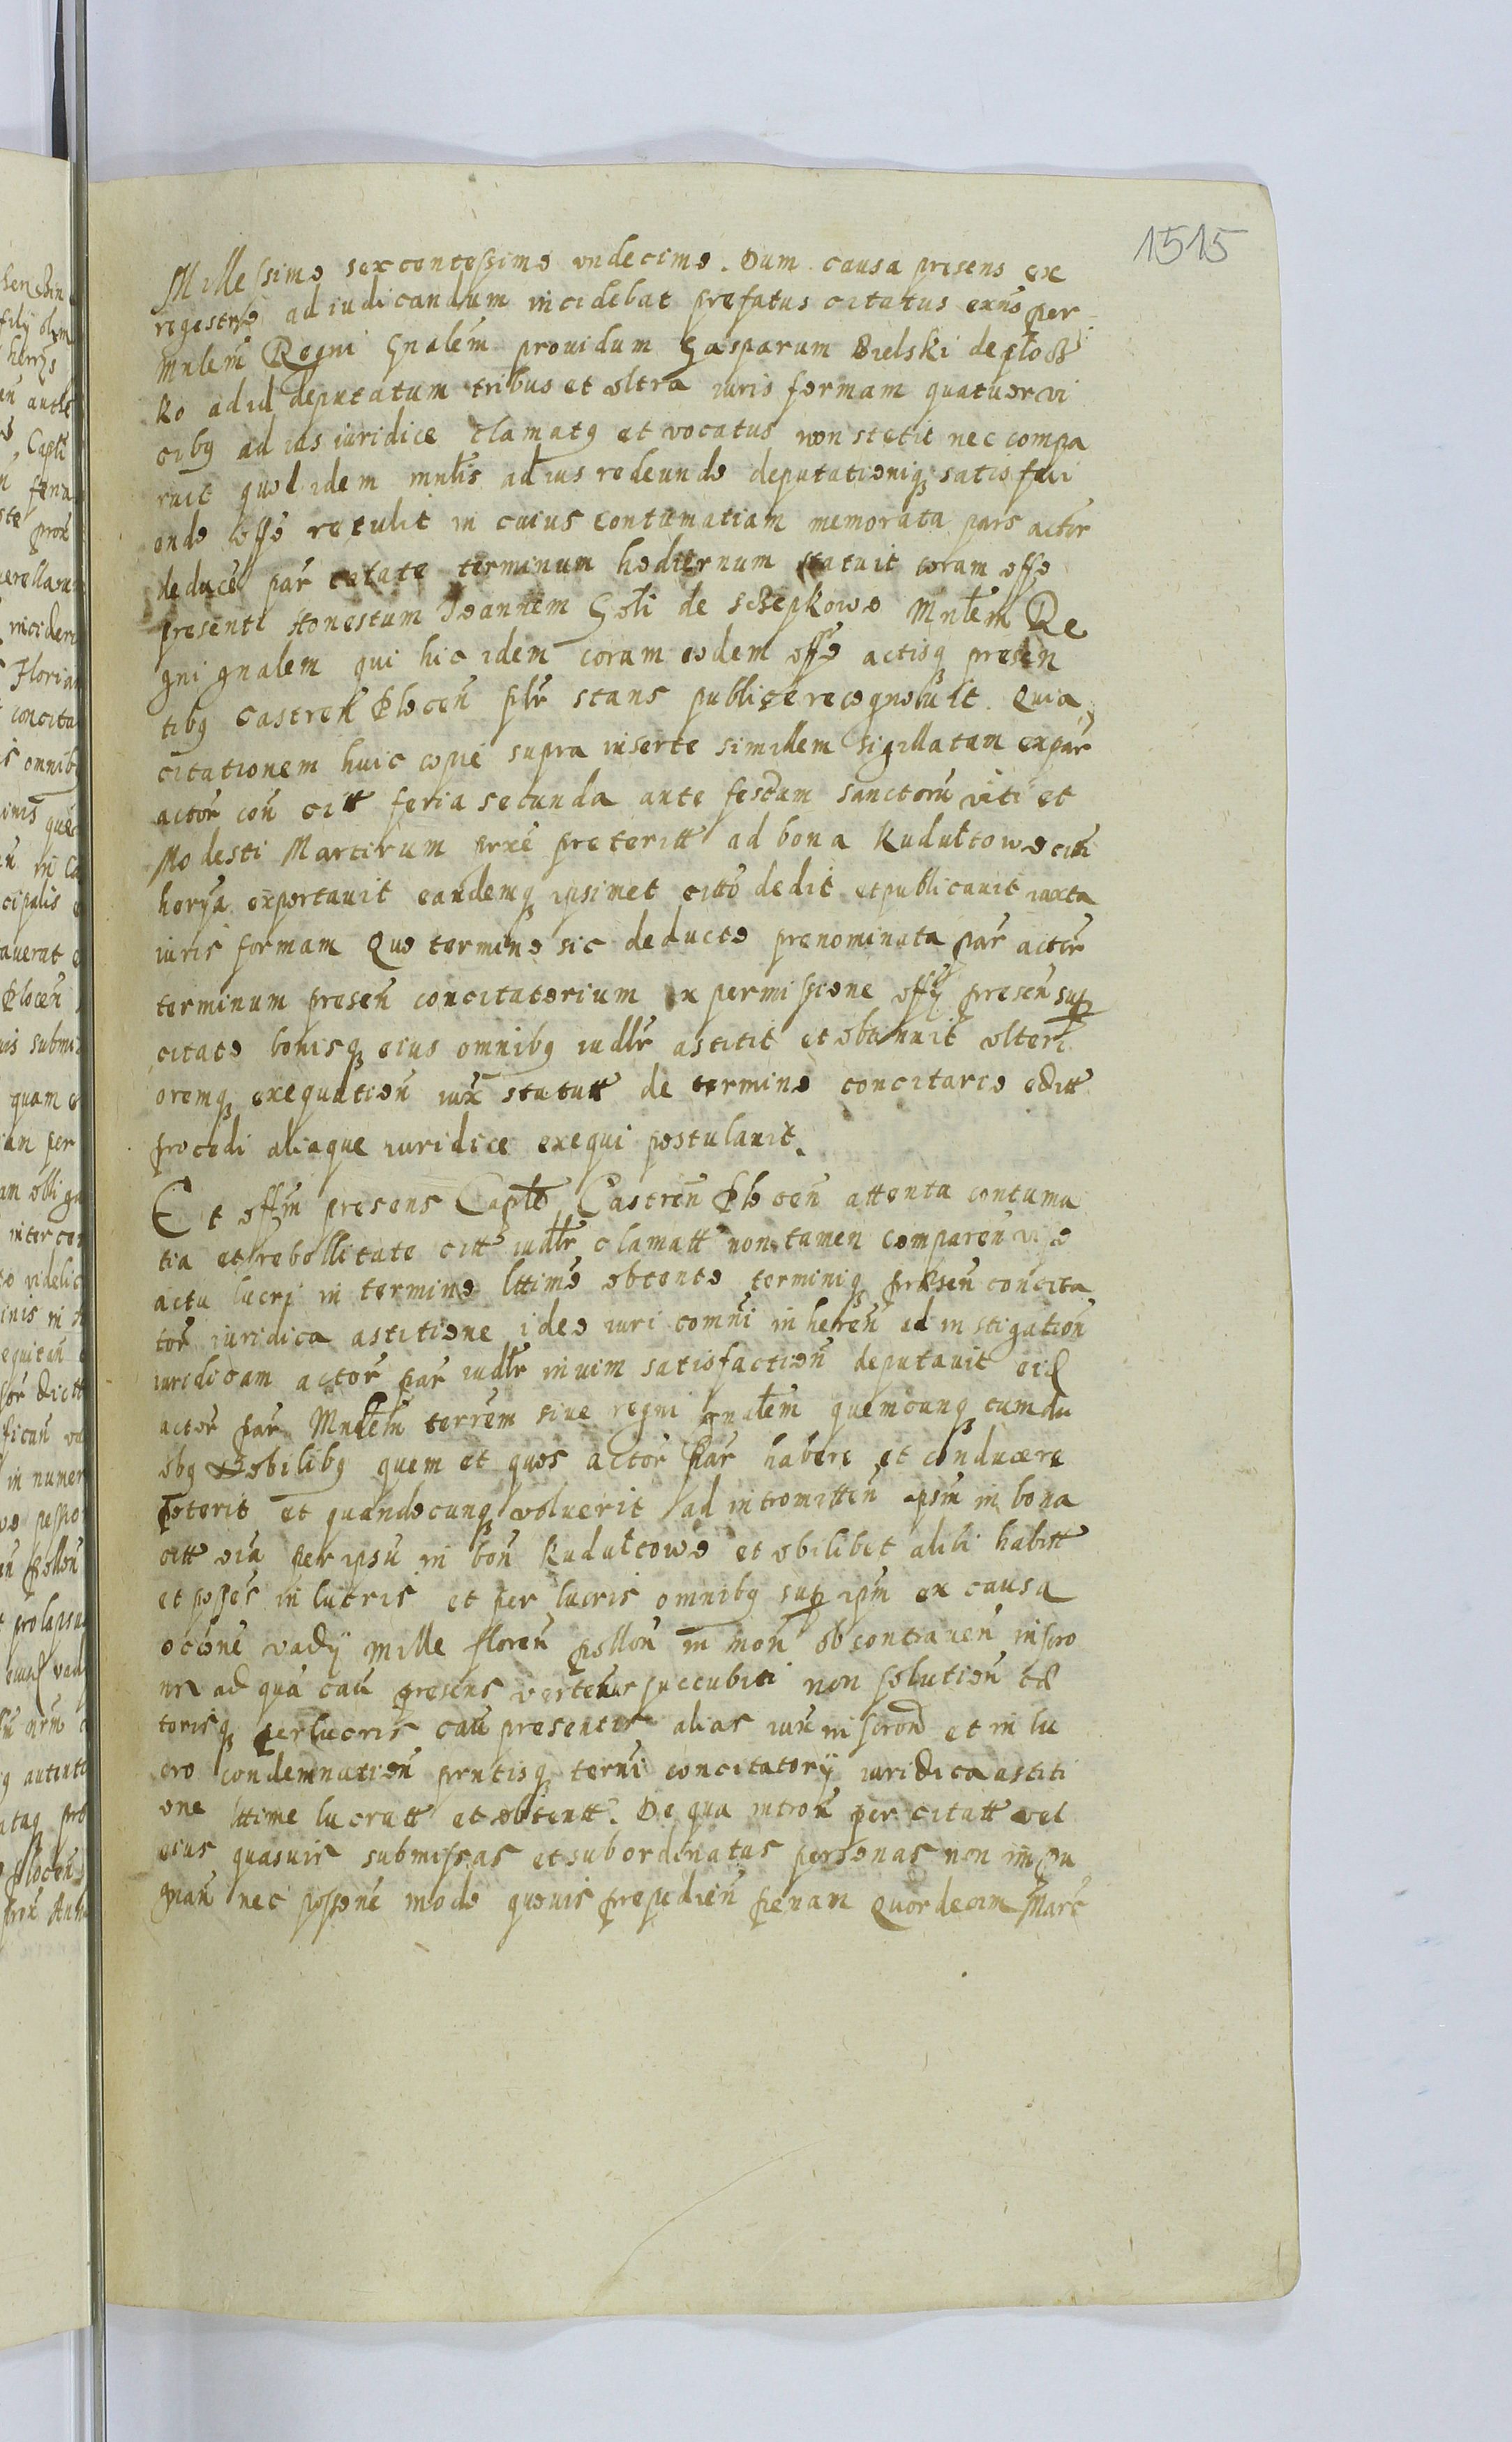 1515
Millessimo sexcentessimo vndecimo. Dum causa presens ex
regestro ad iudicandum incidebat prefatus citatus exns per
mnlem Regni gnalem prouidum Gasparum Bielski de
ko ad id deputatum tribus et vltra iuris formam quatuor vi
cibq ad ius iuridice clamatq et vocatus non stetit nec compa
ruit quod idem mnlis ad ius redeundo deputationiq satisfaci
endo offo retulit in cuius contumatiam memorata pars actor
deducen par citate terminum hodiernum statuit coram offo
presenti Honestum Joannem Goli de sczepkowo Mnlem Re
gni gnalem qui hic idem coram eodem offo actisq presen
tibq Castren Plocen plr stans publice recognouit. Quia
citationem huic copie supra inserte similem sigillatam ex par
actor con citt feria secunda ante festum sanctoru viti et
Modesti Martirum prxe preteritt ad bona Kudultowo citi
horya exportauit eandemq ipsimet citto dedit et publicauit iuxta
iuris formam Quo termino sic deducto prenominata par actor
terminum presen concitatorium ex permissione offy presen sup
citato bonisq eius omnibq iudlr astitit et obtinuit vlteri
oremq exequution iux statutt de termino concitario editt
procedi aliaque iuridice exequi postulauit.
Et offm presens Capto Castren Plocen attenta contuma
tia et rebellitate citt iudlr clamatt non tamen comparen viso
actu lucri in termino lttime obtento terminiq presen concita
tor iuridica astitione ideo iuri comni inheren ad instigation
iuridicam actor par iudlr in vim satisfaction deputauit eid
actor par Mnlem terrem siue regni gnalem quemcunq cum du
obq Nobilibq quem et quos actor par habere et conducere
poterit et quandocunq voluerit ad intromitten ipsm in bona
citt oia per ipsu in bon Kudultowo et vbilibet alibi habitt
et posses in lucris et per lucris omnibq sup ipm ex causa
ocone vady mille floren pollon in mon ob contrauen inscro
nn ad qua cau presens vertitur succubiti non solution
torisq perlucris cau presentis alias iux inscrond et in lu
cro condemnation prntisq termi concitatory iuridica astiti
one lttime lucratt et obtentt. De qua introm per citatt vel
eius quasuis submissas et subordinatas personas non impu
gnan nec possone modo quouis prepedien penam quordecim Marc